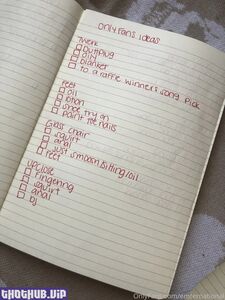 OnlyFans ideas
Twerk
buttplug
oily
blanket
to a raffle winners song pick
feet
oil
lotion
shoe try on
paint toe nails
Glass chair
squirt
anal
just smoosh/sitting/oil
feet
upclose
fingering
squirt
anal
bj
THOTHUB.VIP
OnlyFans.com/